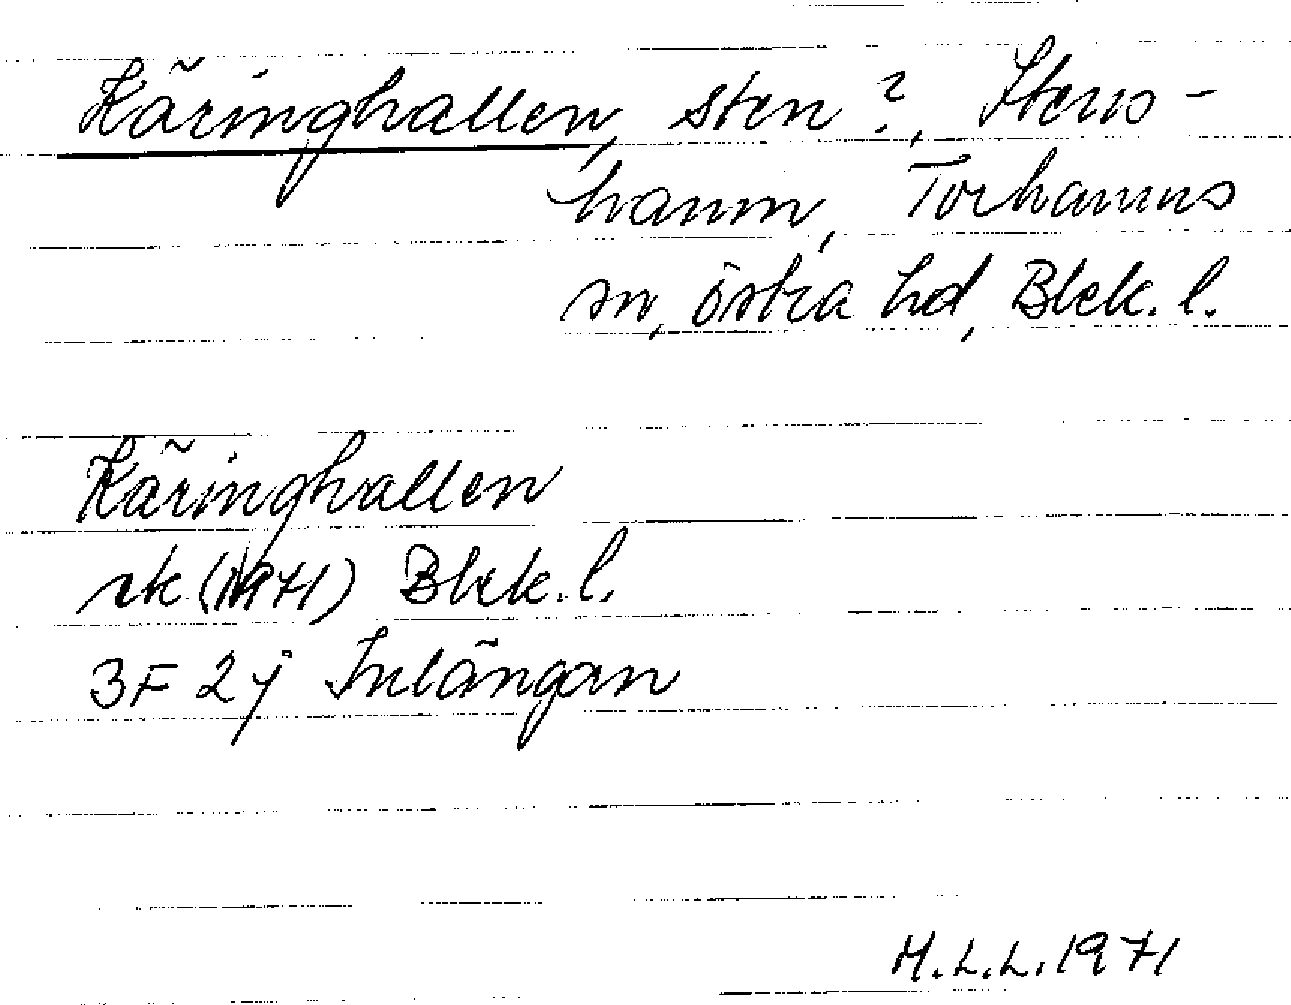 Käringhallen, sten?, Stens-
hamn, Torhamns
sn, Östra hd, Blek. l.
Käringhallen
rk (1971) Blek. l.
3F 2j Inlängan
M.L.L. 1971